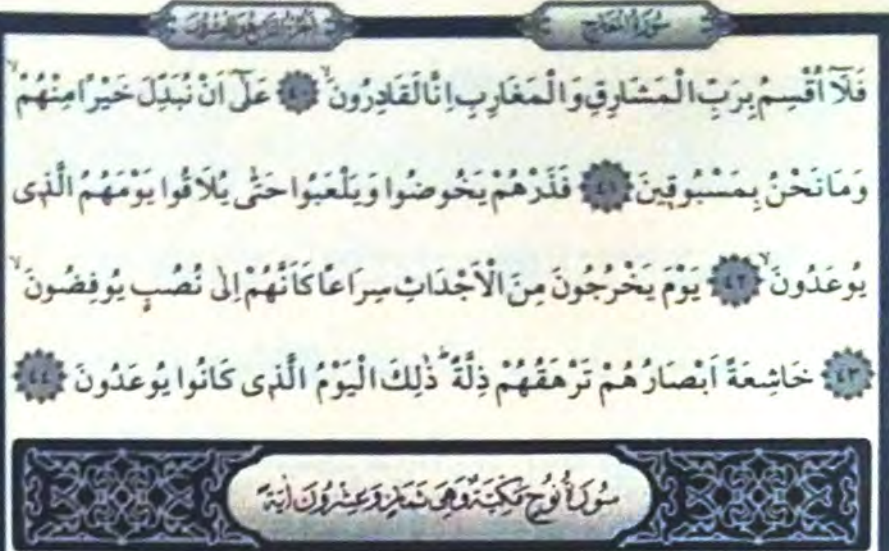 سُورَةُ الْمَعَارِجِ
اَلْجُزْءُ التَّاسِعُ وَالْعِشْرُونَ
فَلَٓا اُقْسِمُ بِرَبِّ الْمَشَارِقِ وَالْمَغَارِبِ اِنَّا لَقَادِرُونَۙ ﴿٤٠﴾ عَلٰٓى اَنْ نُبَدِّلَ خَيْرًا مِنْهُمْۙ
وَمَا نَحْنُ بِمَسْبُوق۪ينَ ﴿٤١﴾ فَذَرْهُمْ يَخُوضُوا وَيَلْعَبُوا حَتّٰى يُلَاقُوا يَوْمَهُمُ الَّذ۪ى
يُوعَدُونَۙ ﴿٤٢﴾ يَوْمَ يَخْرُجُونَ مِنَ الْاَجْدَاثِ سِرَاعًا كَاَنَّهُمْ اِلٰى نُصُبٍ يُوفِضُونَۙ
﴿٤٣﴾ خَاشِعَةً اَبْصَارُهُمْ تَرْهَقُهُمْ ذِلَّةٌۜ ذٰلِكَ الْيَوْمُ الَّذ۪ى كَانُوا يُوعَدُونَ ﴿٤٤﴾
سُورَةُ نُوحٍ مَكِّيَّةٌ وَهِىَ ثَمَانٍ وَعِشْرُونَ اٰيَةً